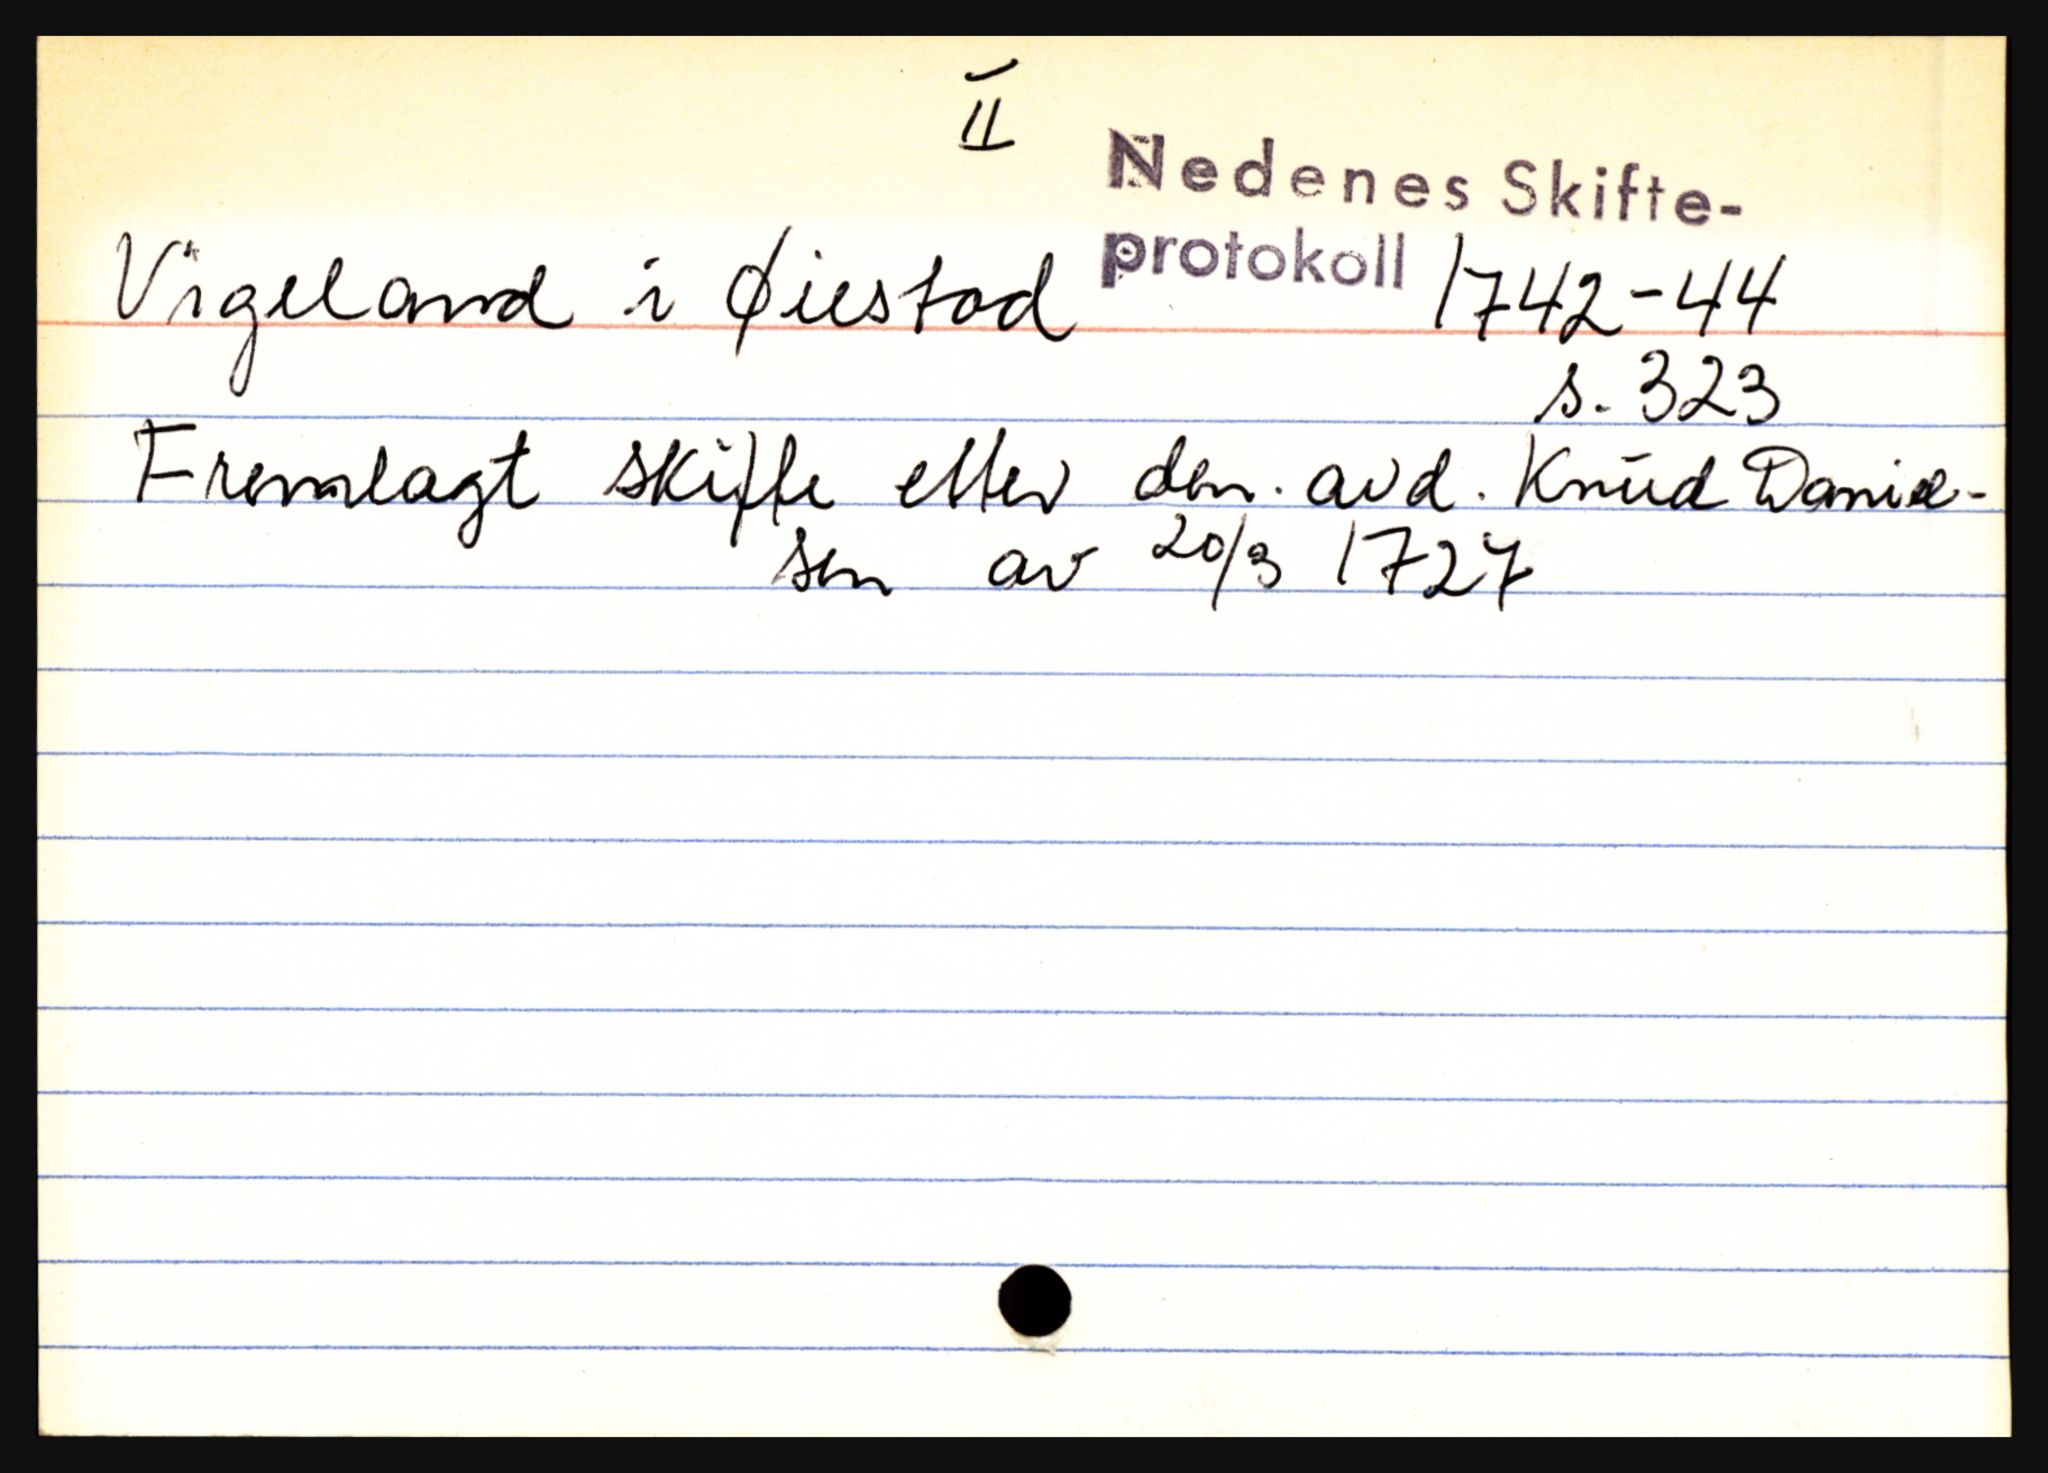 II
Nedenes Skifte-
protokoll
Vigeland i Øiestad 1742-44
s. 323
Fremlagt skifte etter den. avd. Knud Daniel-
sen av 20/3 1727